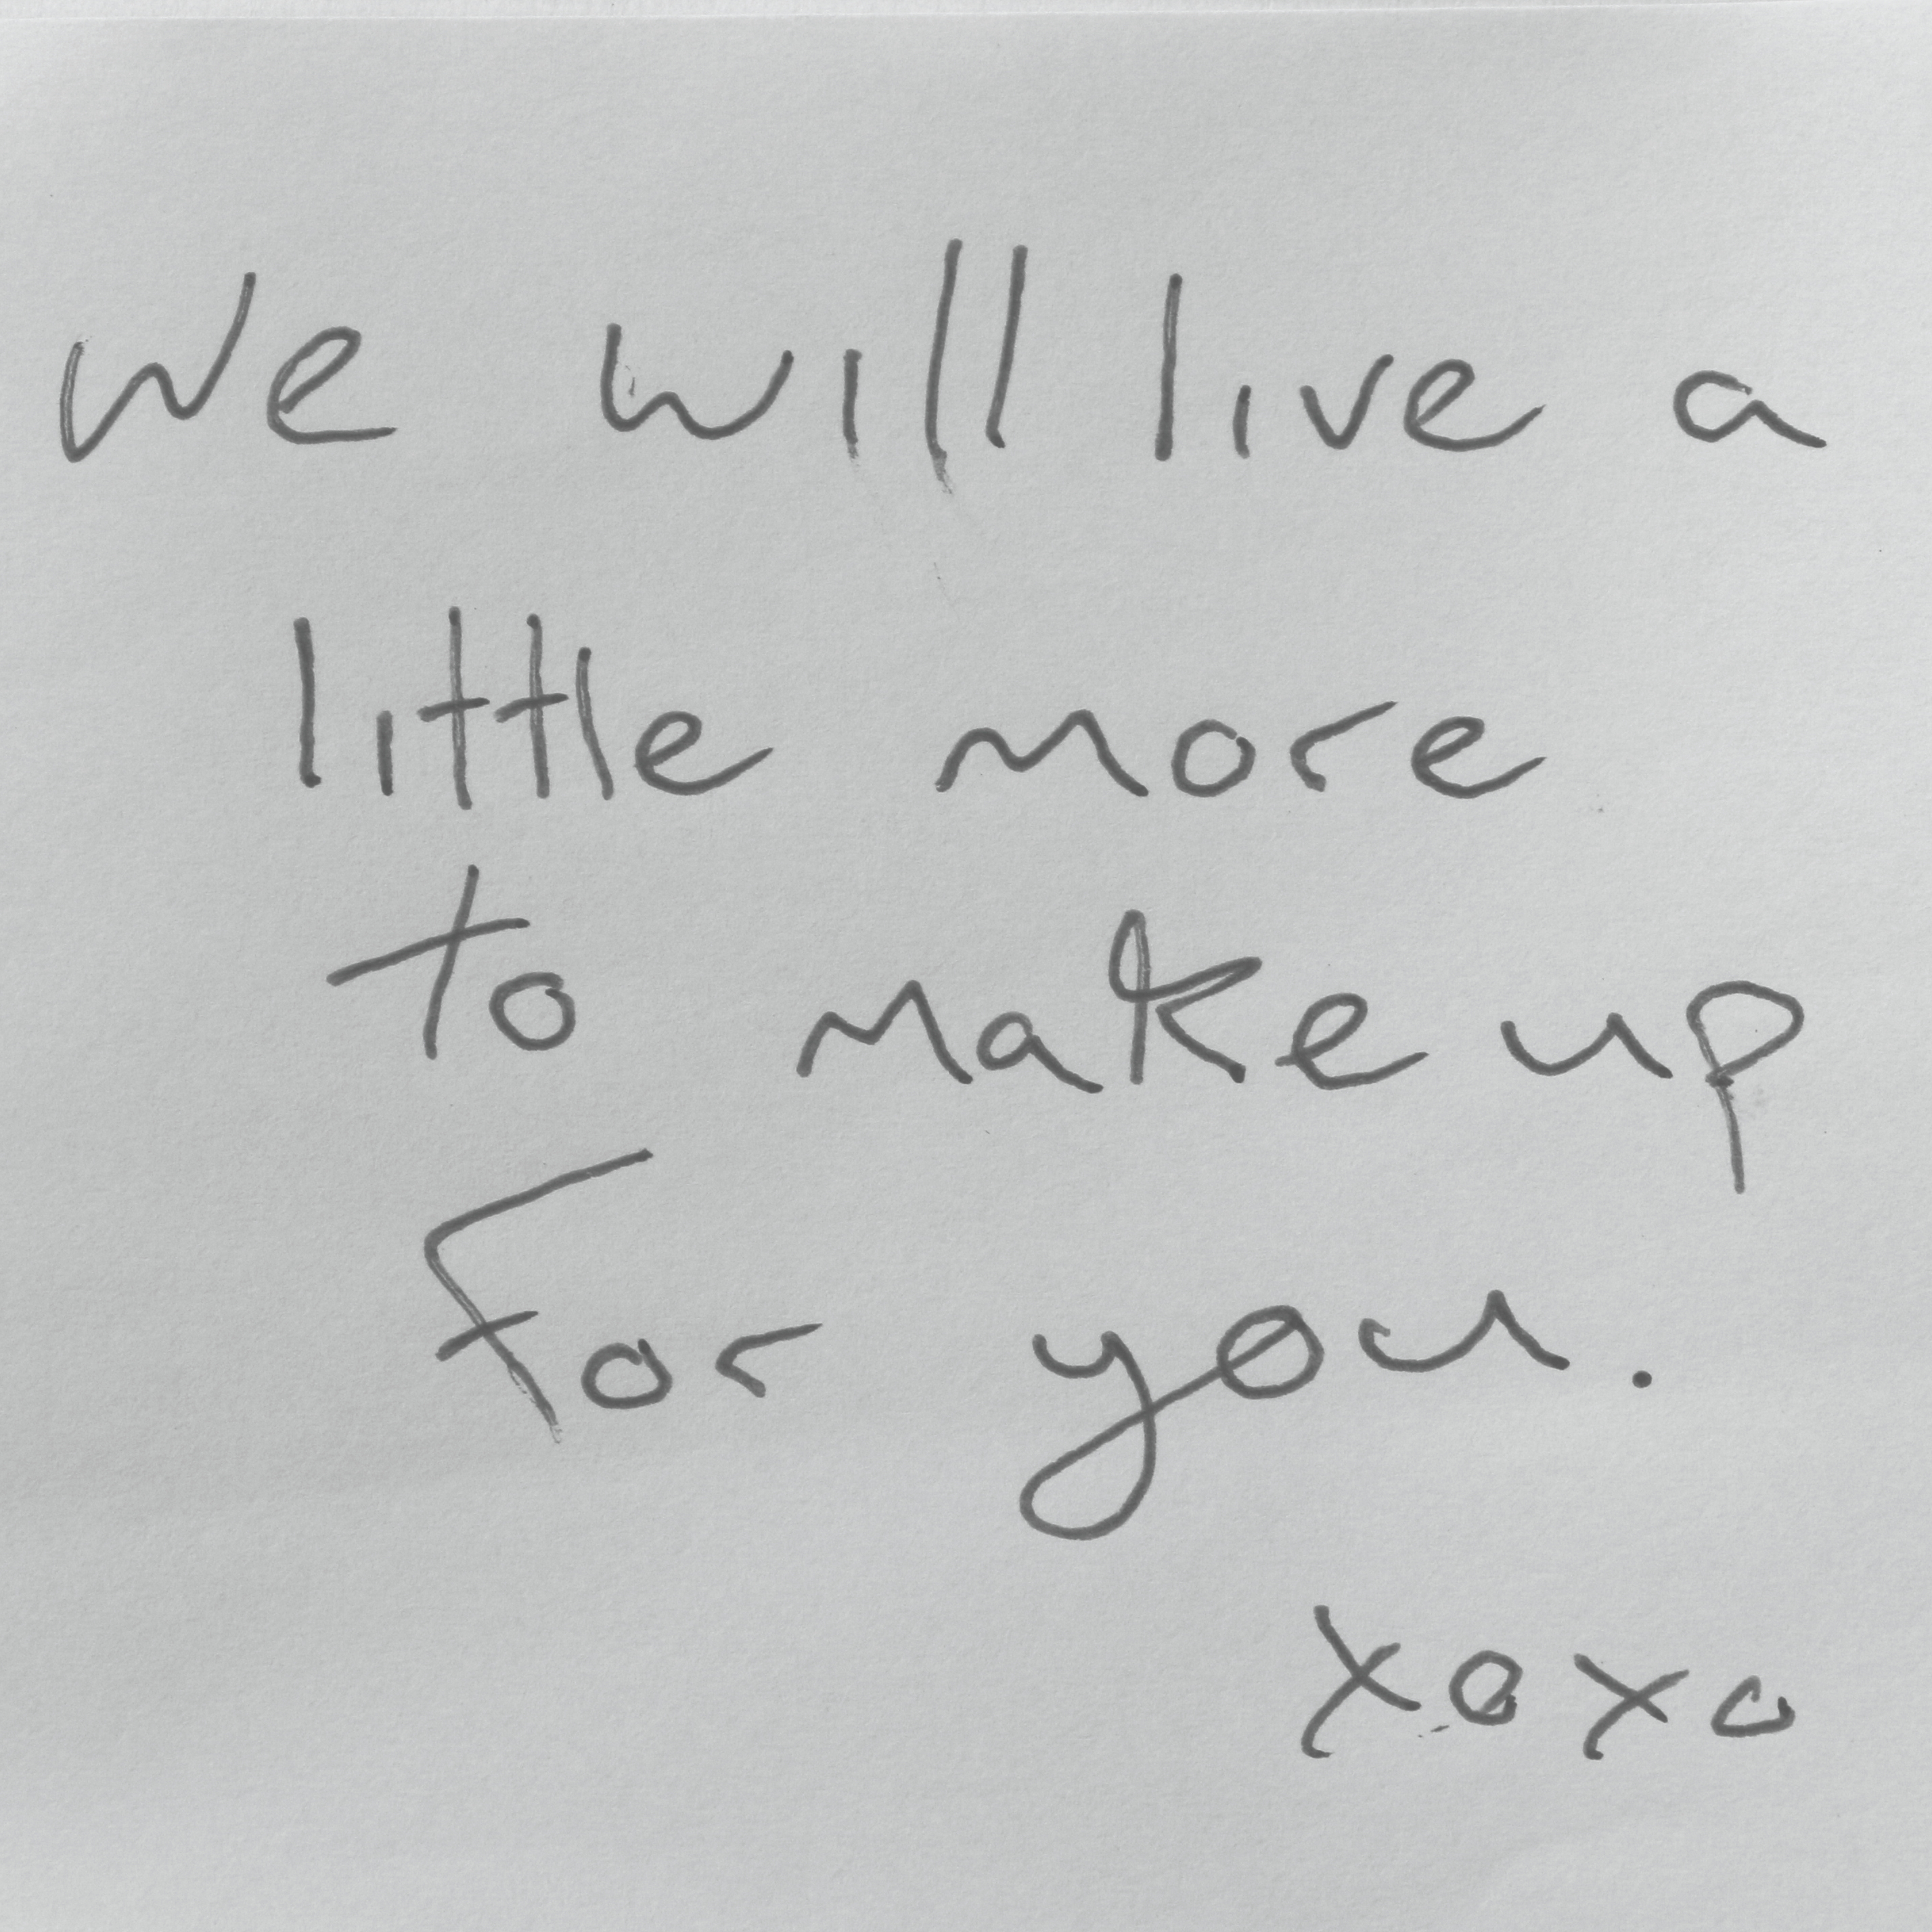 We will live a
little more
to make up
For you.
xoxo